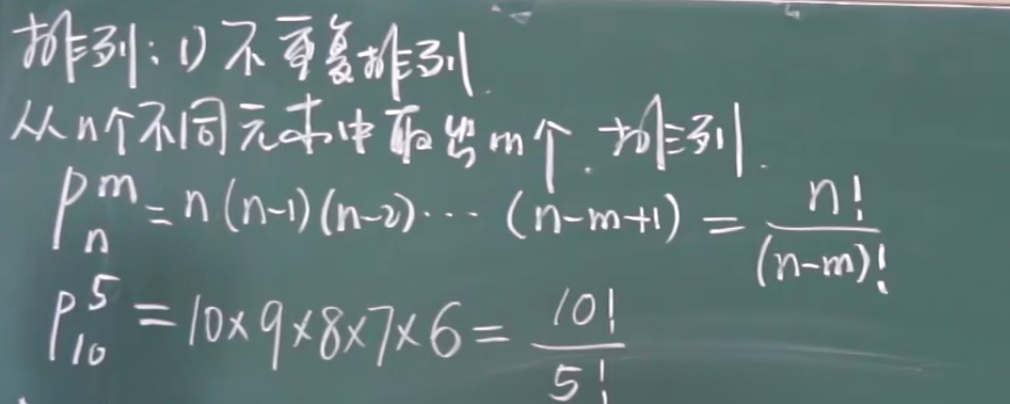 排列：1) 不重复排列.
从n个不同元素中取出m个. 排列.
P_n^m = n(n-1)(n-2)⋯ (n-m+1) = n!/(n-m)!
P_10^5 = 10×9×8×7×6 = 10!/5!